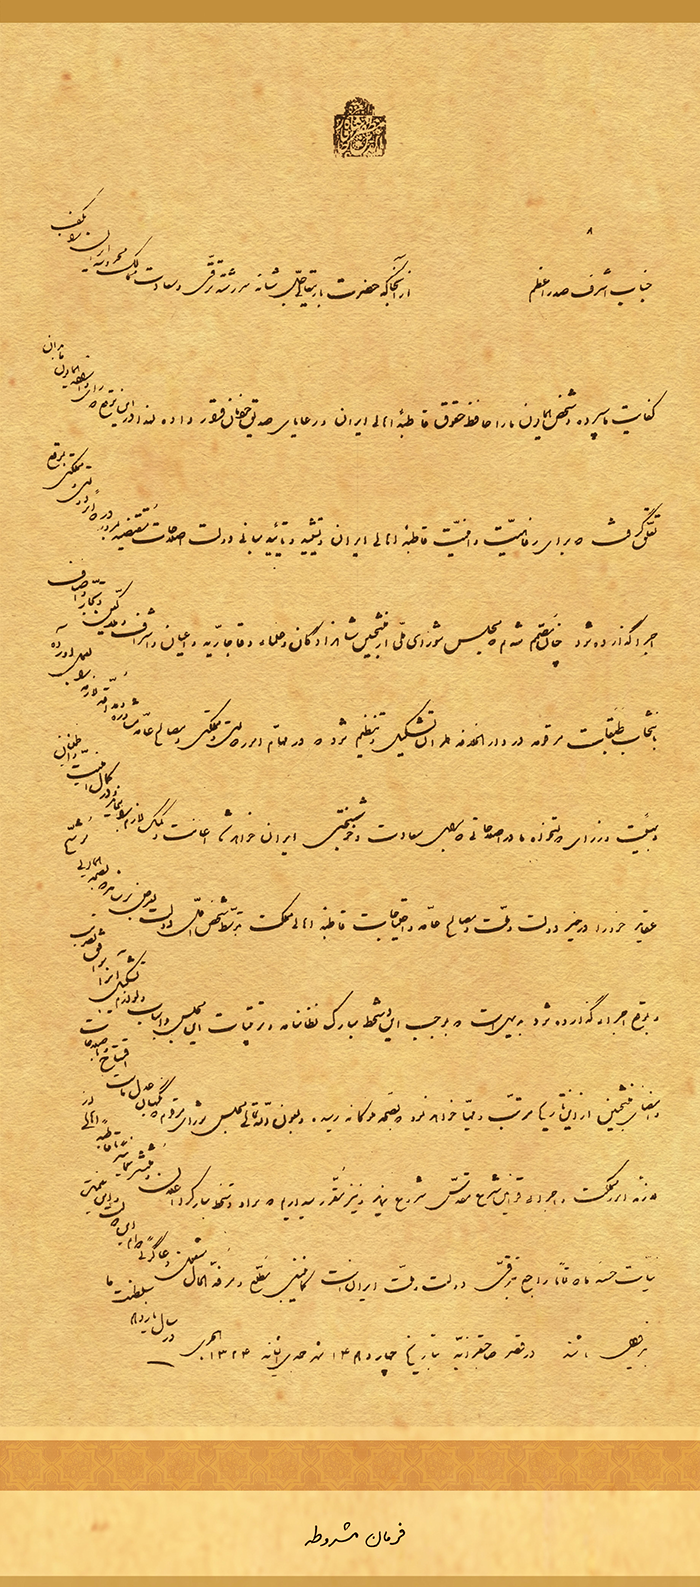 جناب اشرف صدراعظم
از آنجا که حضرت باریتعالی جل شأنه سررشته ترقی و سعادت ممالک محروسه ایران را بکف
کفایت ما سپرده و شخص همایون ما را حافظ حقوق قاطبه اهالی ایران و رعایای صدیق خودمان قرار داده لهذا در این موقع که رأی و اراده همایون ما بدان
تعلق گرفت که برای رفاهیت و امنیت قاطبه اهالی ایران و تشیید و تأیید مبانی دولت اصلاحات مقتضیه بمرور در دوائر دولتی و مملکتی بموقع
اجرا گذارده شود چنان مصمم شدیم که مجلس شورای ملی از منتخبین شاهزادگان و علماء و قاجاریه و اعیان و اشراف و ملاکین و تجار و اصناف
بانتخاب طبقات مرقومه در دارالخلافه طهران تشکیل و تنظیم شود که در مهام امور دولتی و مملکتی و مصالح عامه مشاوره و مداقه لازمه را بعمل آورده
و بهیئت وزرای دولتخواه ما در اصلاحاتی که برای سعادت و خوشبختی ایران خواهد شد اعانت و کمک لازم را بنماید و در کمال امنیت و اطمینان
عقاید خود را در خیر دولت و ملت و مصالح عامه و احتیاجات قاطبه اهالی مملکت بتوسط شخص اول دولت بعرض برساند که بصحه همایونی موشح
و بموقع اجرا گذارده شود بدیهی است که بموجب این دستخط مبارک نظامنامه و ترتیبات این مجلس و اسباب و لوازم تشکیل آنرا موافق تصویب
و امضای منتخبین از این تاریخ مرتب و مهیا خواهد نمود که بصحه ملوکانه رسیده و بعون الله تعالی مجلس شورای مرقوم که نگهبان عدل ماست افتتاح و باصلاحات
لازمه امور مملکت و اجراء قوانین شرع مقدس شروع نماید و نیز مقرر میداریم که سواد دستخط مبارک را اعلان و منتشر نمائید تا قاطبه اهالی از
نیات حسنه ما که تماما راجع بترقی دولت و ملت ایران است کماینبغی مطلع و مرفه الحال مشغول دعاگوئی دوام این دولت و این نعمت
بی‌زوال باشند در قصر صاحبقرانیه بتاریخ چهاردهم ۱۴ شهر جمادی الثانیه ۱۳۲۴ هجری در سال یازدهم سلطنت ما
فرمان مشروطه